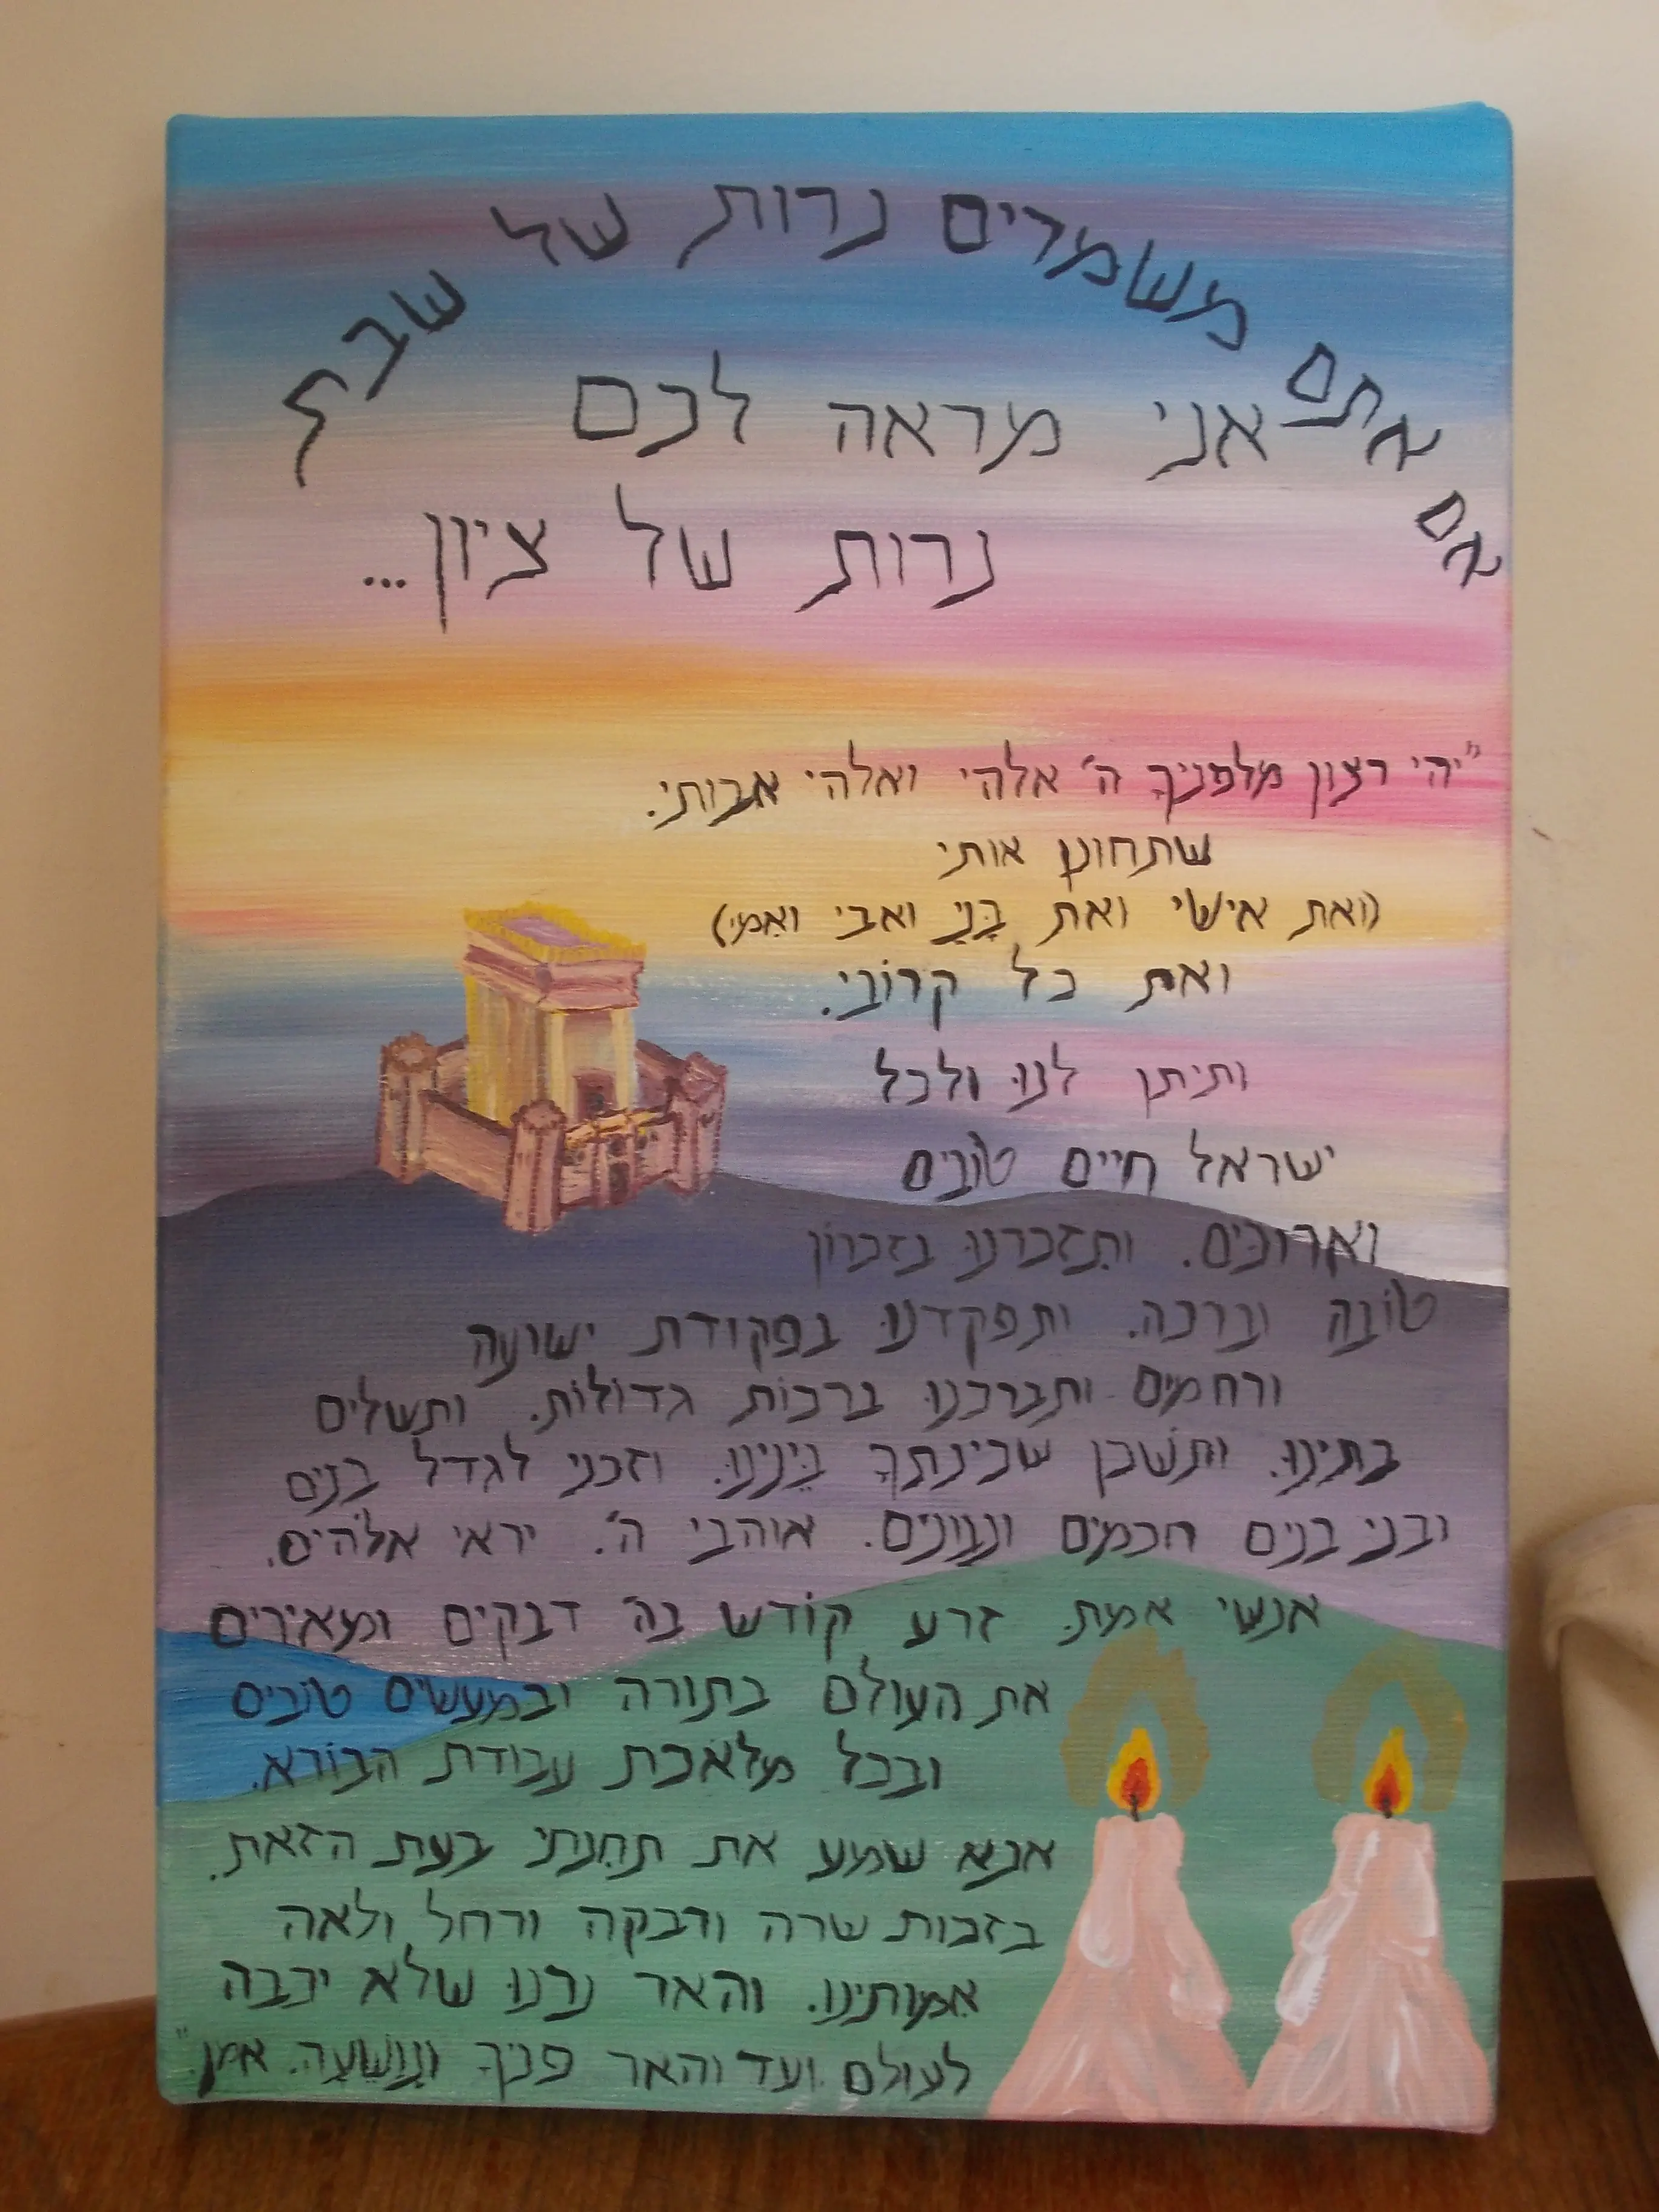 אם אתם משמרים נרות של שבת
אני מראה לכם
נרות של ציון...
"יהי רצון מלפניךָ ה' אלהי ואלהי אבותי.
שתחונן אותי
(ואת אישי ואת בָּנַי ואבי ואִמי)
ואת כל קרוֹבי.
ותיתן לנוּ ולכל
ישראל חיים טוֹבים
וארוכּים. ותִזכרנוּ בזכרוֹן
טוֹבה וברכה. ותפקדנוּ בפקודת ישועה
ורחמים ותברכנוּ ברכוֹת גדוֹלוֹת. ותשלים
בתינוּ. ותַשׁכן שכינתךָ בֵּינינוּ. וזכני לגדל בנים
ובני בנים חכמים ונבונים. אוהבי ה'. יראי אלֹהים.
אנשי אמת. זרע קוֹדש בה' דבקים ומאירים
את העולם בתורה ובמעשים טוֹבים
ובכל מלאכת עבודת הבוֹרא.
אנא שמע את תחִנתי בעת הזאת.
בזכות שרה ורבקה ורחל ולאה
אִמותינו. והאר נרנוּ שלא יכבה
לעולם ועד והאר פניךָ ונִוָשֵׁעָה. אמן."